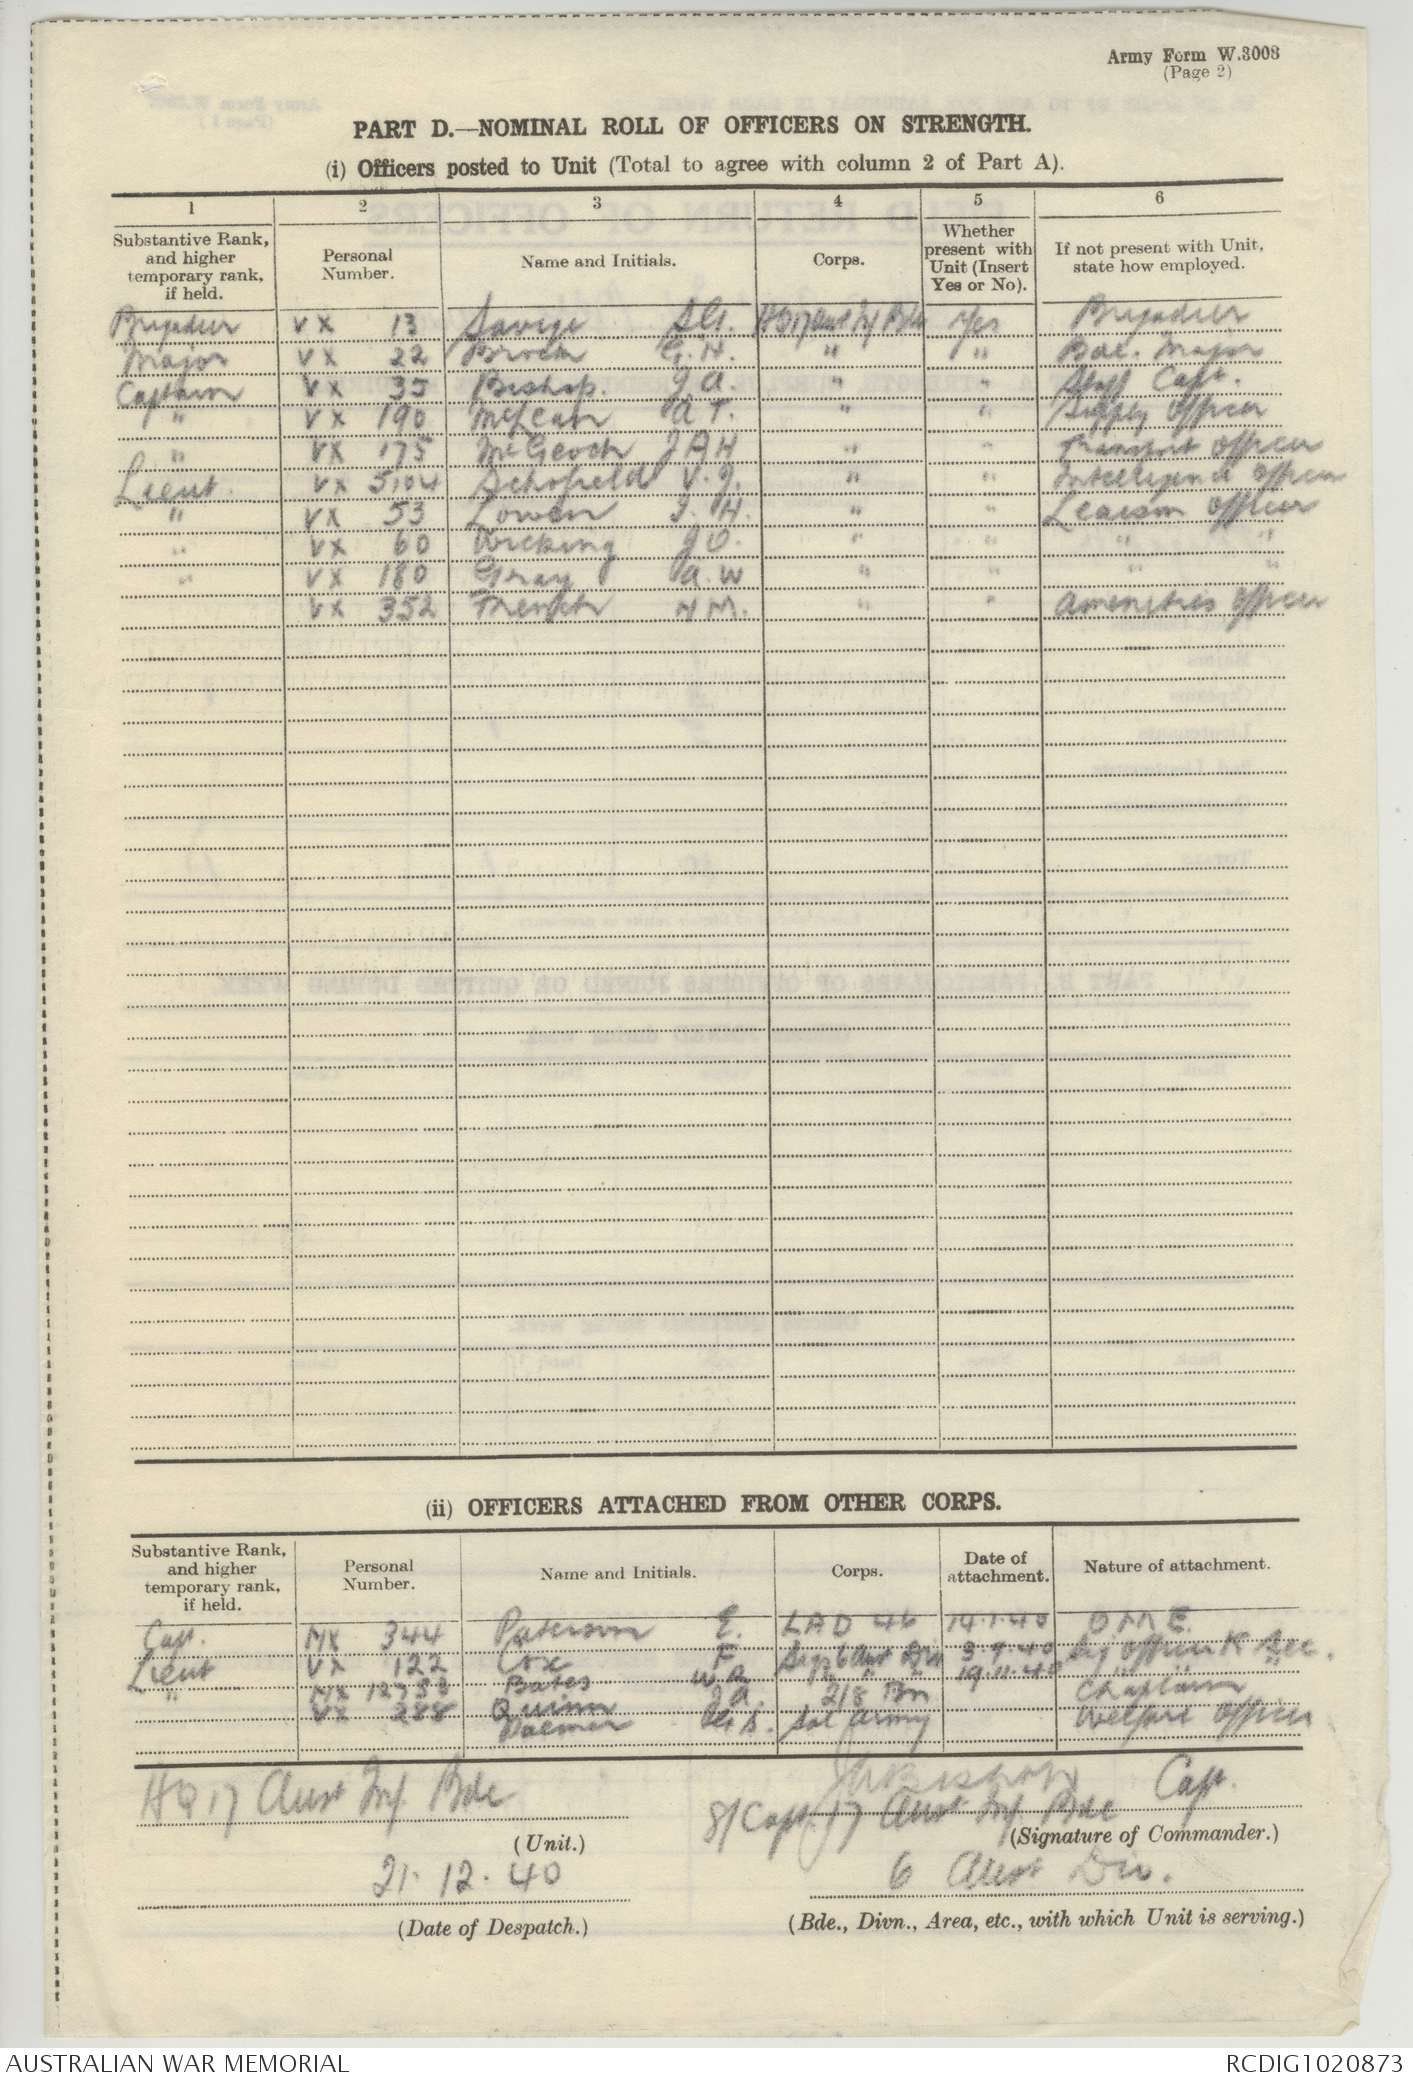 Army Form W.3008
(Page 2)
PART D.—NOMINAL ROLL OF OFFICERS ON STRENGTH.
(i) Officers posted to Unit (Total to agree with column 2 of Part A).
1 2 3 4 5 6
Substantive Rank, and higher temporary rank, if held. Personal Number. Name and Initials. Corps. Whether present with Unit (Insert Yes or No). If not present with Unit, state how employed.
Brigadier VX 13 Savige S.G. HQ 17 Aust Inf Bde Yes Brigadier
Major VX 22 Brock G.H. " " Bde. Major
Captain VX 35 Bishop. J A. " " Staff Capt.
" VX 190 McLean A T. " " Supply Officer
" VX 175 McGeoch J A H " " Transport Officer
Lieut. VX 5104 Schofield V. J. " " Intelligence Officer
" VX 53 Lowen I. H. " " Leaison Officer
" VX 60 Wicking J O. " " " "
" VX 180 Gray A. W " " " "
VX 352 French H M. " " Amenities Officer
(ii) OFFICERS ATTACHED FROM OTHER CORPS.
Substantive Rank, and higher temporary rank, if held. Personal Number. Name and Initials. Corps. Date of attachment. Nature of attachment.
Capt. NX 344 Paterson E. LAD 46 14.1.40 O M E.
Lieut VX 122 Cox F Sigs 6 Aust Div 3.9.40 Sig Officer K Sec.
" NX Bates W R " " 19.11.40 " " "
VX 288 Quinn J A. 2/8 Bn Chaplain
Dalmer Sal Army Welfare Officer
HQ 17 Aust Inf Bde
(Unit.)
JABishop Capt.
S/Capt. 17 Aust Inf Bde
(Signature of Commander.)
21. 12. 40
(Date of Despatch.)
6 Aust Div.
(Bde., Divn., Area, etc., with which Unit is serving.)
AUSTRALIAN WAR MEMORIAL
RCDIG1020873